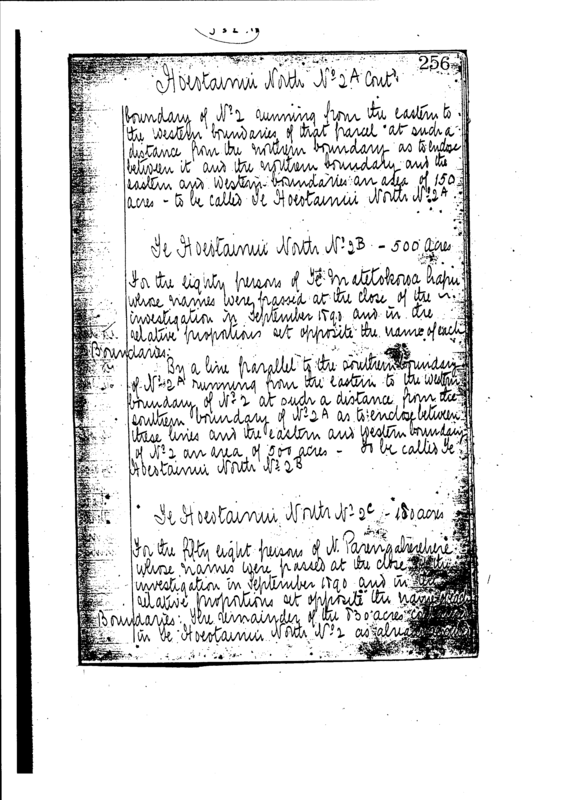 256
Hoeotainui North No 2A Contd
boundary of No 2 running from the eastern to
the western boundaries of that parcel at such a
distance from the northern boundary as to enclose
between it and the northern boundary and the
eastern and western boundaries an area of 150
acres - to be called Te Hoeotainui North No 2A
Te Hoeotainui North No 2B - 500 acres
For the eighty persons of Te Matetokoroa hapu
whose names were passed at the close of the
investigation in September 1890 and in the
relative proportions set opposite the name of each
Boundaries:
By a line parallel to the southern boundary
of No 2A running from the eastern to the western
boundary of No 2 at such a distance from the
southern boundary of No 2A as to enclose between
these lines and the eastern and western boundary
of No 2 an area of 500 acres - To be called Te
Hoeotainui North No 2B
Te Hoeotainui North No 2C - 180 acres
For the fifty eight persons of N.
whose names were passed at the close of the
investigation in September 1890 and in the
relative proportions set opposite the name
Boundaries: The remainder of the acres
in Te Hoeotainui North No 2 as